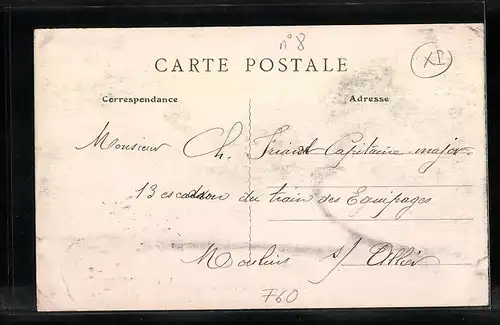 n° 8
XP
CARTE POSTALE
Correspondance
Adresse
Monsieur Ch. Capitaine major
13 escadron du train des Equipages
Moulins s/ Allier
F60